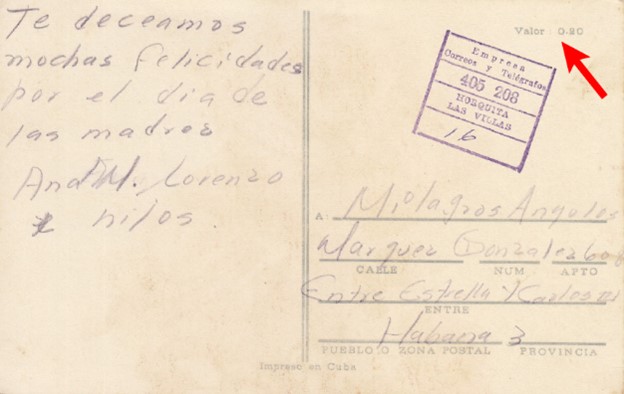 Te deceamos
mochas felicidades
por el dia de
las madres
Ana M. Lorenzo
e hijos
Valor 0.20
Empresa
Correos y Telégrafos
405 208
HORQUITA
LAS VILLAS
16
A: Milagros Angulos
Marquez Gonzalez 60
CALLE NUM APTO
Entre Estrella Y Carlos III
ENTRE
Habana 3
PUEBLO O ZONA POSTAL PROVINCIA
Impreso en Cuba